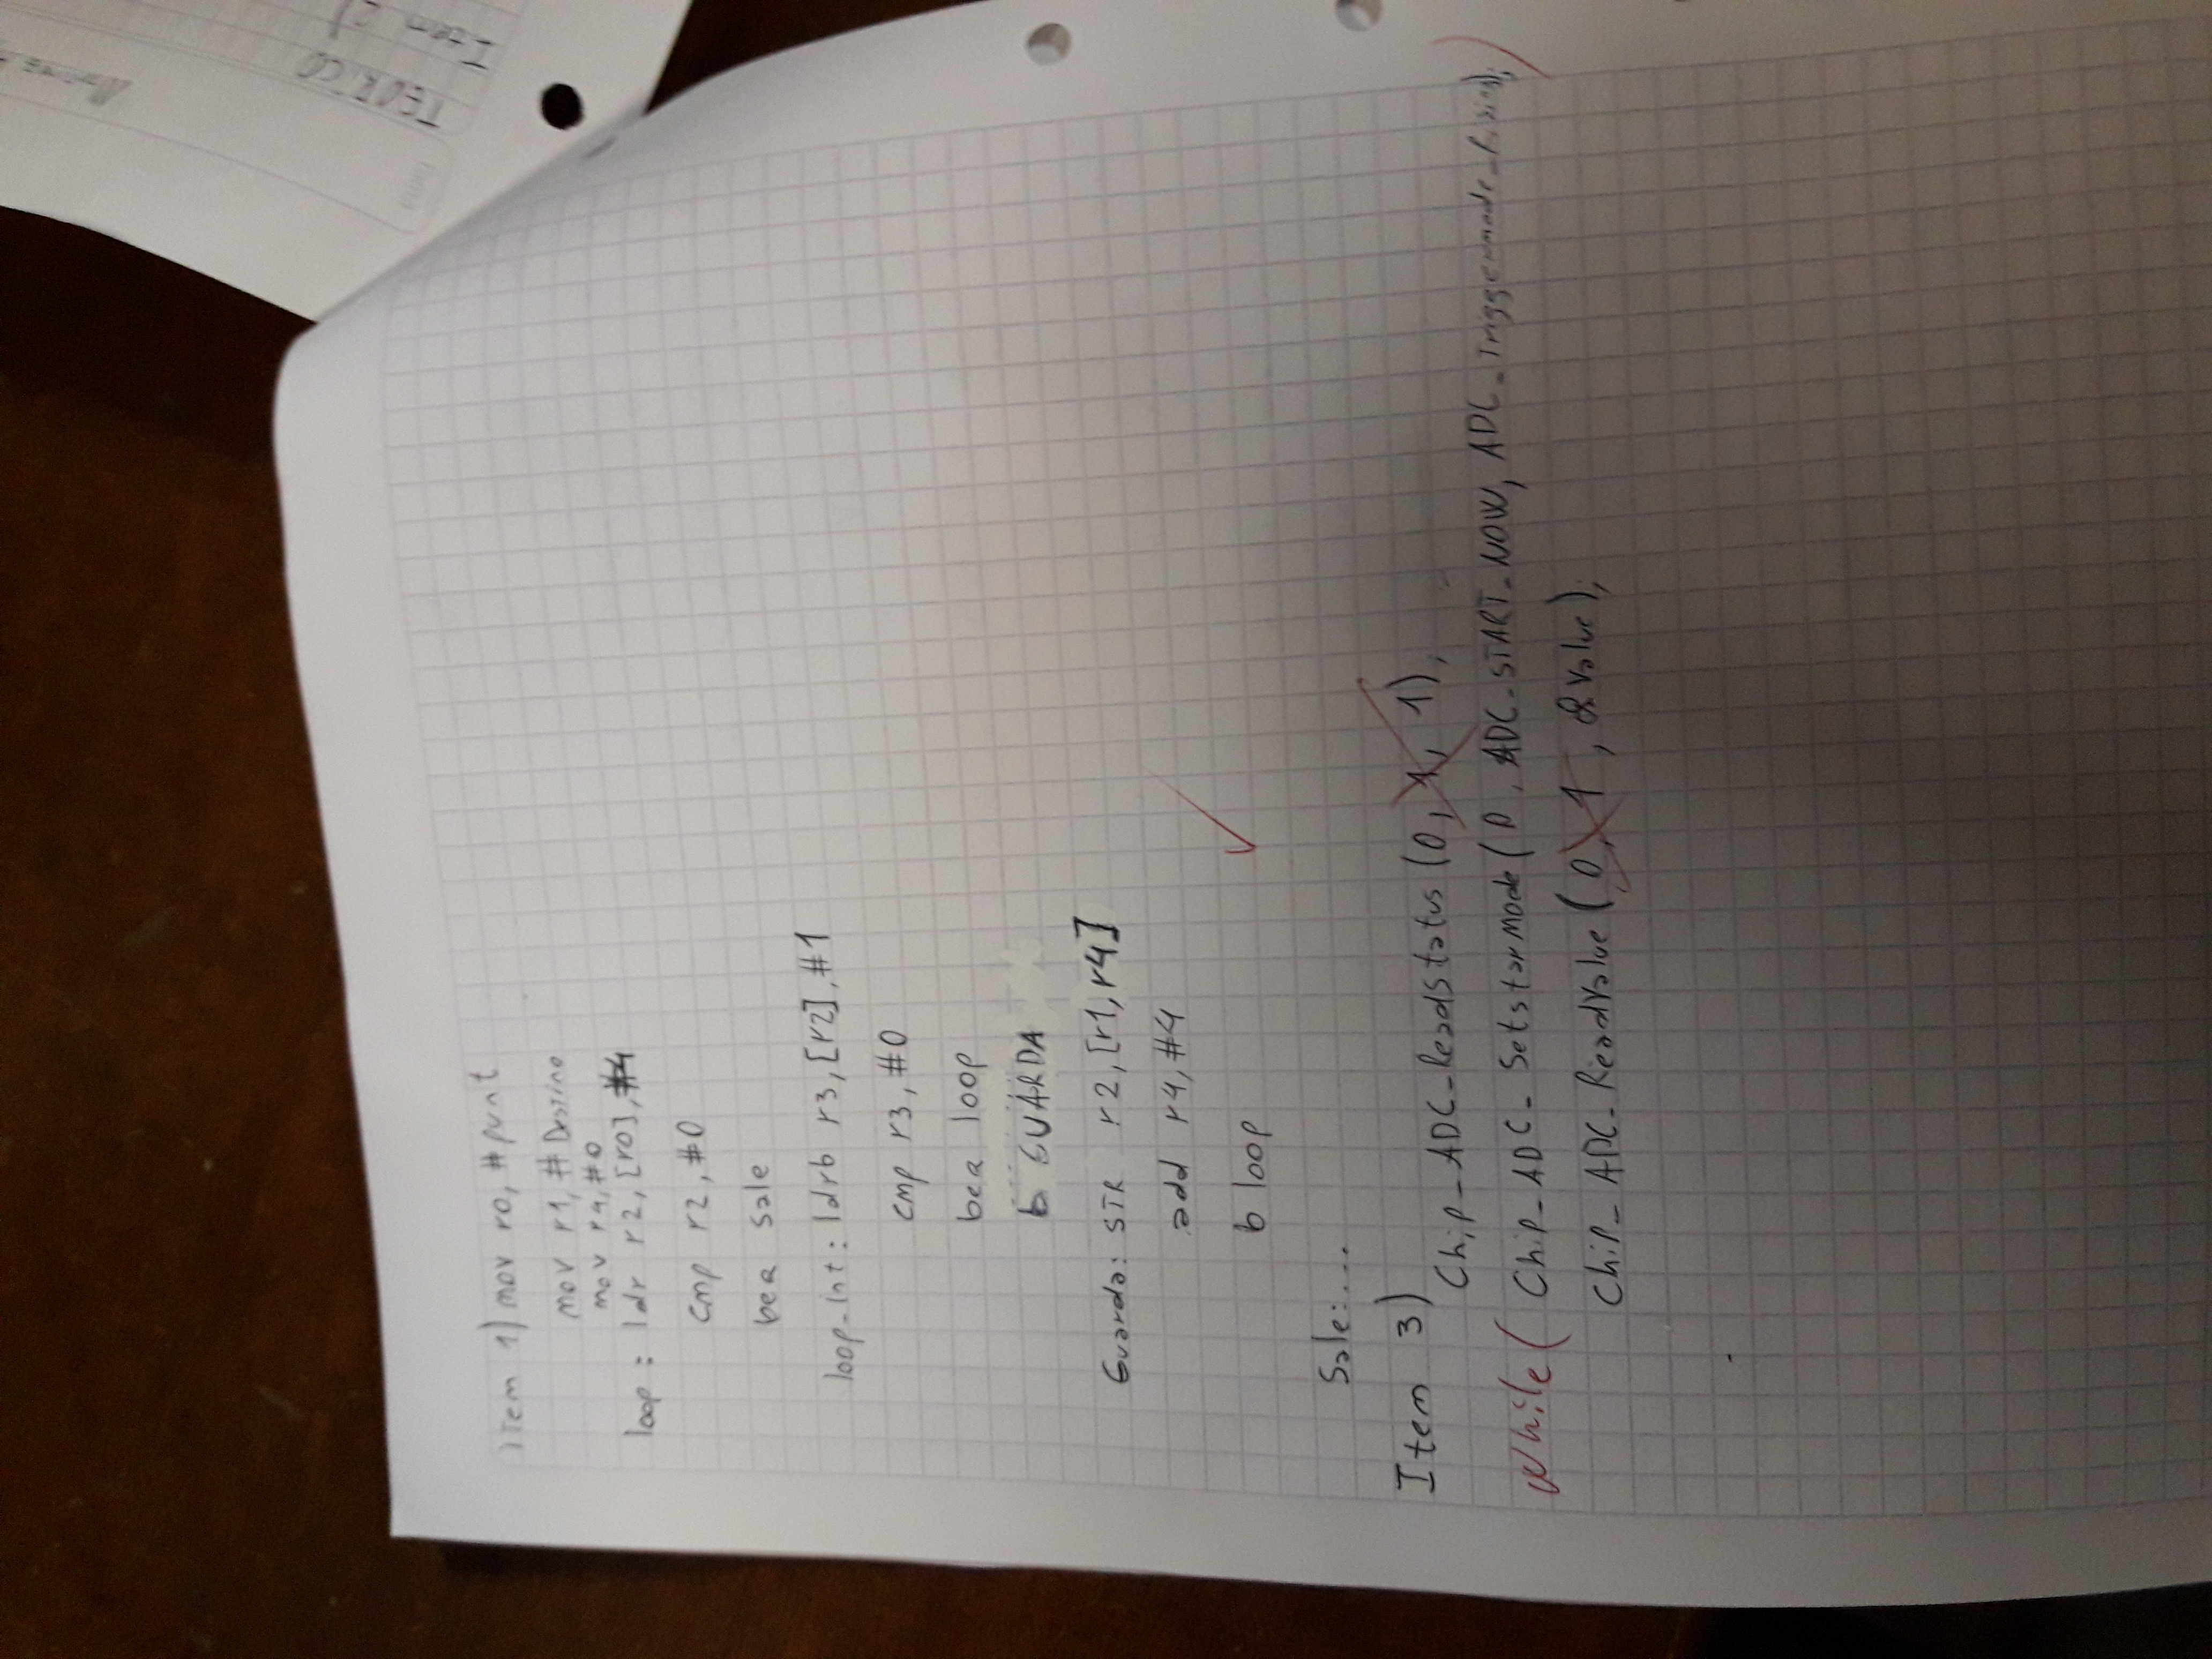 TEORICO
Item 2)
Item 1) mov r0, #punt
mov r1, #Destino
mov r4, #0
loop: ldr r2, [r0], #4
cmp r2, #0
beq sale
loop-int: ldrb r3, [r2], #1
cmp r3, #0
beq loop
b GUARDA
Guarda: STR r2, [r1, r4]
add r4, #4
b loop
Sale:...
Item 3)
Chip_ADC_ReadStatus (0, 1, 1);
While( Chip_ADC_SetstarMode (0, ADC_START_NOW, ADC_Triggermode_Rising); )
Chip_ADC_ReadValue (0, 1, &Value);